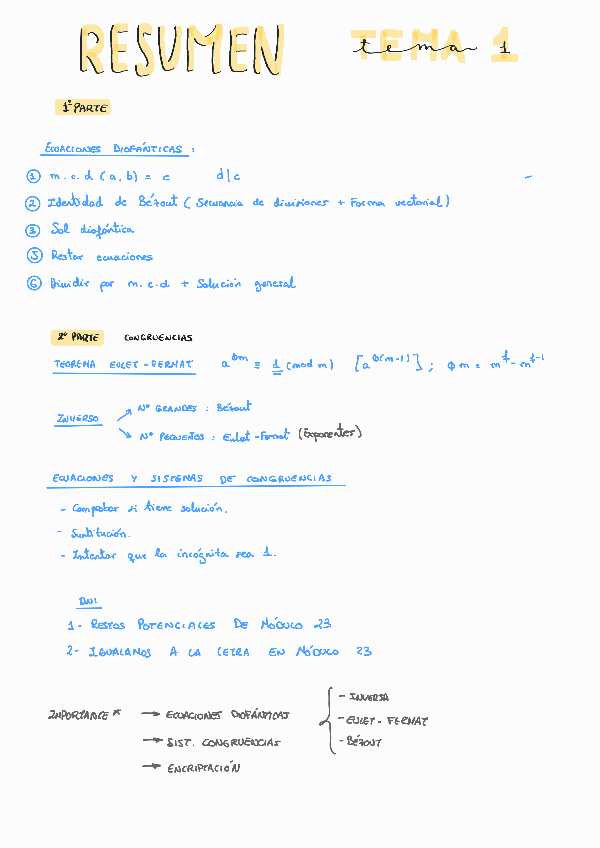 RESUMEN tema 1
TEMA 1
1ª PARTE
ECUACIONES DIOFÁNTICAS :
① m.c.d (a,b) = c d|c
② Identidad de Bézout ( Secuencia de divisiones + Forma vectorial )
③ Sol diofántica
⑤ Restar ecuaciones
⑥ Dividir por m.c.d + Solución general
2º PARTE CONGRUENCIAS
TEOREMA EULET - FERMAT a^ϕm ≡ 1 (mod m) [a^ϕ(m-1)] ; ϕm = m^f - m^f-1
INVERSO
Nº GRANDES : Bézout
Nº PEQUEÑOS : Eulet - Fermat (Exponentes)
ECUACIONES Y SISTEMAS DE CONGRUENCIAS
- Comprobar si tiene solución.
- Sustitución.
- Intentar que la incógnita sea 1.
DNI
1- RESTOS POTENCIALES DE MÓDULO 23
2- IGUALAMOS A LA LETRA EN MÓDULO 23
IMPORTANTE * → ECUACIONES DIOFÁNTICAS
→ SIST. CONGRUENCIAS
→ ENCRIPTACIÓN
- INVERSA
- EULET - FERMAT
- BÉZOUT